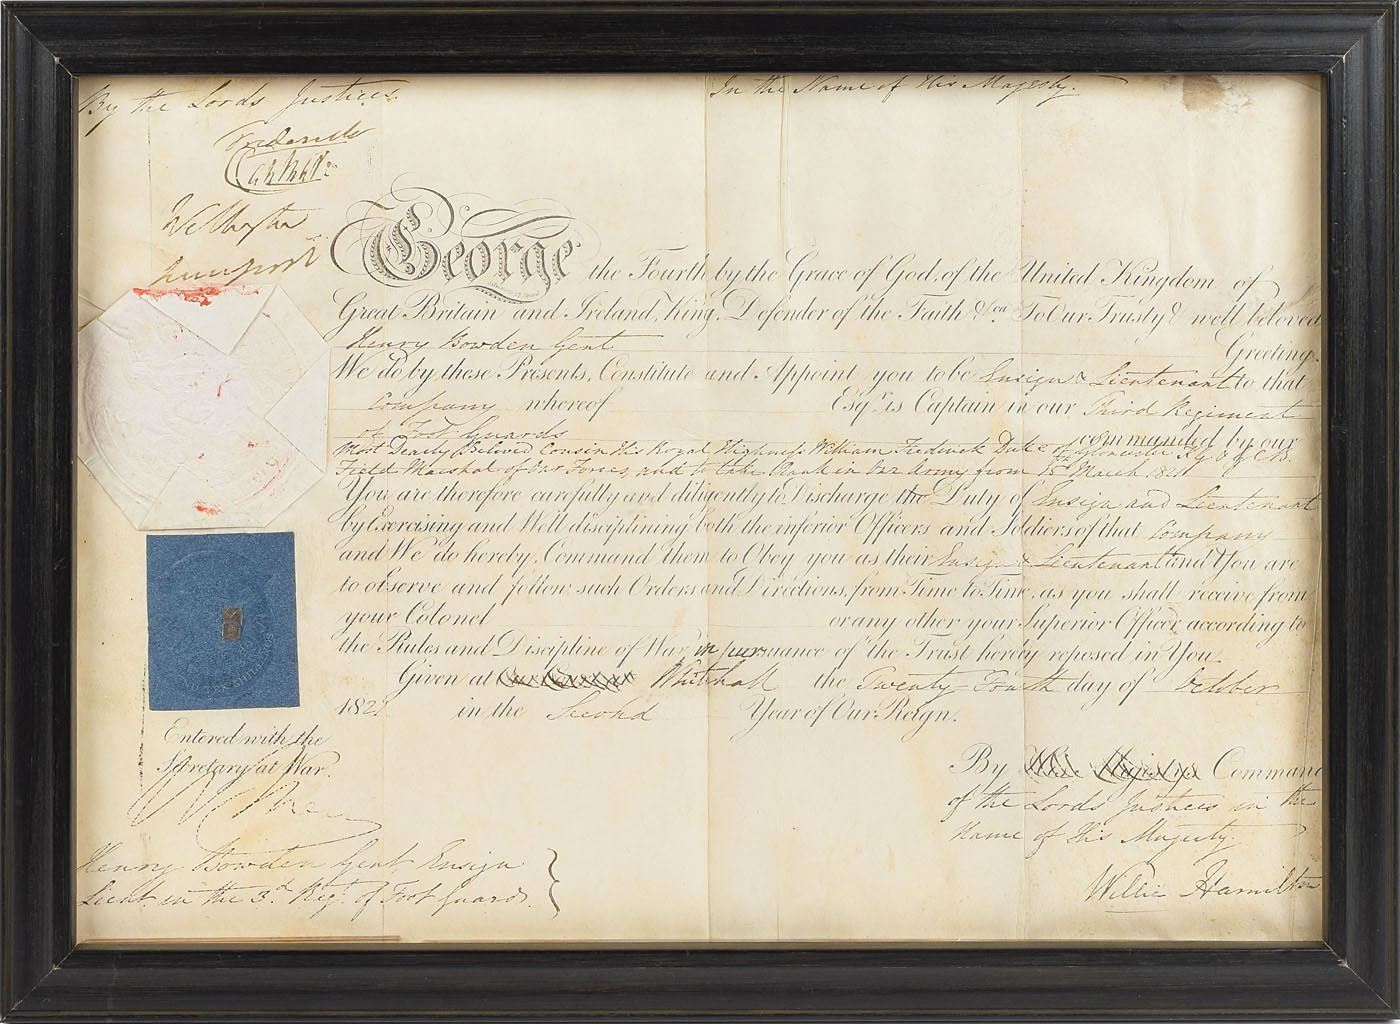 By the Lords Justices.
In the Name of His Majesty.
Frederick
Wellington
Liverpool
George the Fourth by the Grace of God, of the United Kingdom of
Great Britain and Ireland, King, Defender of the Faith &ca To Our Trusty & well beloved
Henry Bowden Gent Greeting.
We do by these Presents, Constitute and Appoint you to be Ensign & Lieutenant to that
Company whereof Esqr. is Captain in our Third Regiment
of Foot Guards commanded by our
Most Dearly Beloved Cousin His Royal Highness William Frederick Duke of Gloucester K.G. & G.C.B.
Field Marshal of Our Forces, and to take Rank in Our Army from 15 March 1821
You are therefore carefully and diligently to Discharge the Duty of Ensign and Lieutenant
by Exercising and Well disciplining both the inferior Officers and Soldiers of that Company
and We do hereby Command them to Obey you as their Ensign & Lieutenant and You are
to observe and follow such Orders and Directions, from Time to Time, as you shall receive from
your Colonel or any other your Superior Officer according to
the Rules and Discipline of War, in pursuance of the Trust hereby reposed in You.
Given at Whitehall the Twenty-Fourth day of October
182 in the Second Year of Our Reign.
Entered with the
Secretary at War.
By Command
of the Lords Justices in the
Name of His Majesty.
Henry Bowden Gent, Ensign
Lieut in the 3d. Regt. of Foot Guards.
Hamilton